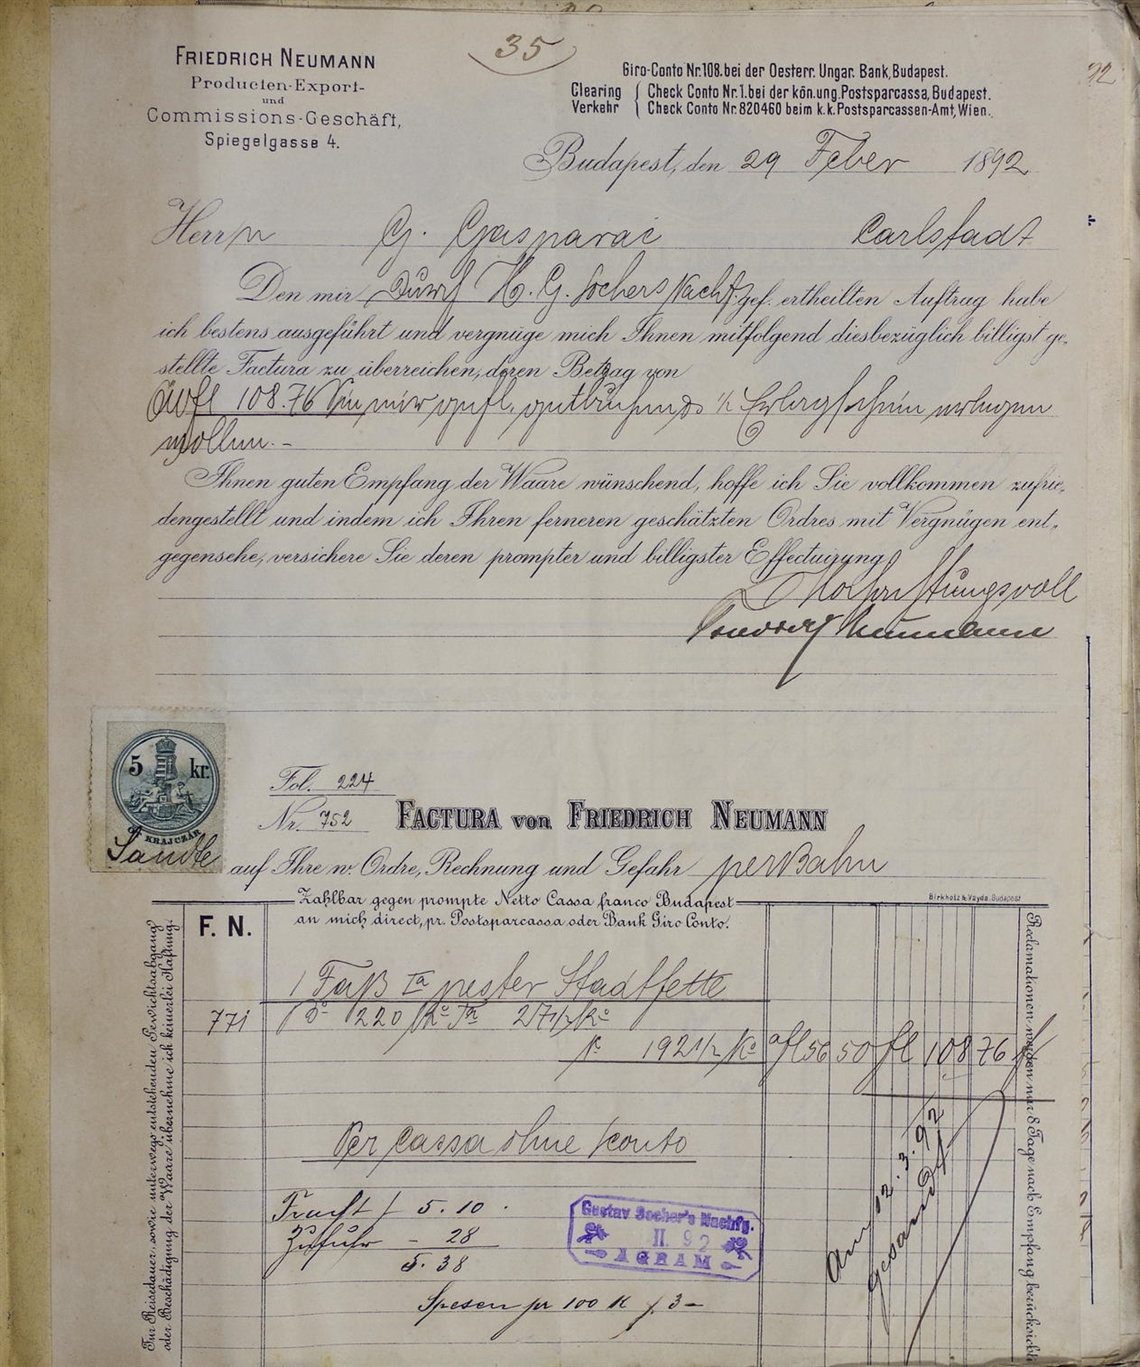 35
92
FRIEDRICH NEUMANN
Producten-Export-
und
Commissions-Geschäft,
Spiegelgasse 4.
Giro-Conto Nr. 108. bei der Oesterr. Ungar. Bank, Budapest.
Clearing Verkehr
Check Conto Nr. 1. bei der kön. ung. Postsparcassa, Budapest.
Check Conto Nr. 820460 beim k.k. Postsparcassen-Amt, Wien.
Budapest, den 29 Feber 1892
Herrn G. Gasparac Carlstadt
Den mir Durch H. G. Sochers Nachf. gef. ertheilten Auftrag habe
ich bestens ausgeführt und vergnüge mich Ihnen mitfolgend diesbezüglich billigst ge-
stellte Factura zu überreichen, deren Betrag von
öwfl 108.76 Sie mir gefl. gutbringen &
wollen. –
Ihnen guten Empfang der Waare wünschend, hoffe ich Sie vollkommen zufrie-
dengestellt und indem ich Ihren ferneren geschätzten Ordres mit Vergnügen ent-
gegensehe, versichere Sie deren prompter und billigster Effectuirung
Hochachtungsvoll
Friedrich Neumann
5 kr.
KRAJCZÁR
Fol. 224
Nr. 752
FACTURA von FRIEDRICH NEUMANN
auf Ihre w. Ordre, Rechnung und Gefahr per Bahn
Birkholz & Vajda. Budapest
Zahlbar gegen prompte Netto Cassa franco Budapest
an mich direct, pr. Postsparcassa oder Bank Giro Conto.
F. N.
1 Faß Ia pester Stadtfette
771 220 Ko Ta 27 1/2 Ko
192 1/2 Ko öfl 56 50 fl 108 76
Per Cassa ohne Sconto
Fracht f 5.10.
Zufuhr – 28
5.38
Spesen pr 100 K f 3–
Gustav Socher's Nachfg.
II. 92
AGRAM
Am 12.3.92
gesandt
Für Reisedauer, sowie unterwegs entstehenden Gewichtsabgang
oder Beschädigung der Waare übernehme ich keinerlei Haftung.
Reclamationen werden nur 8 Tage nach Empfang berücksichti